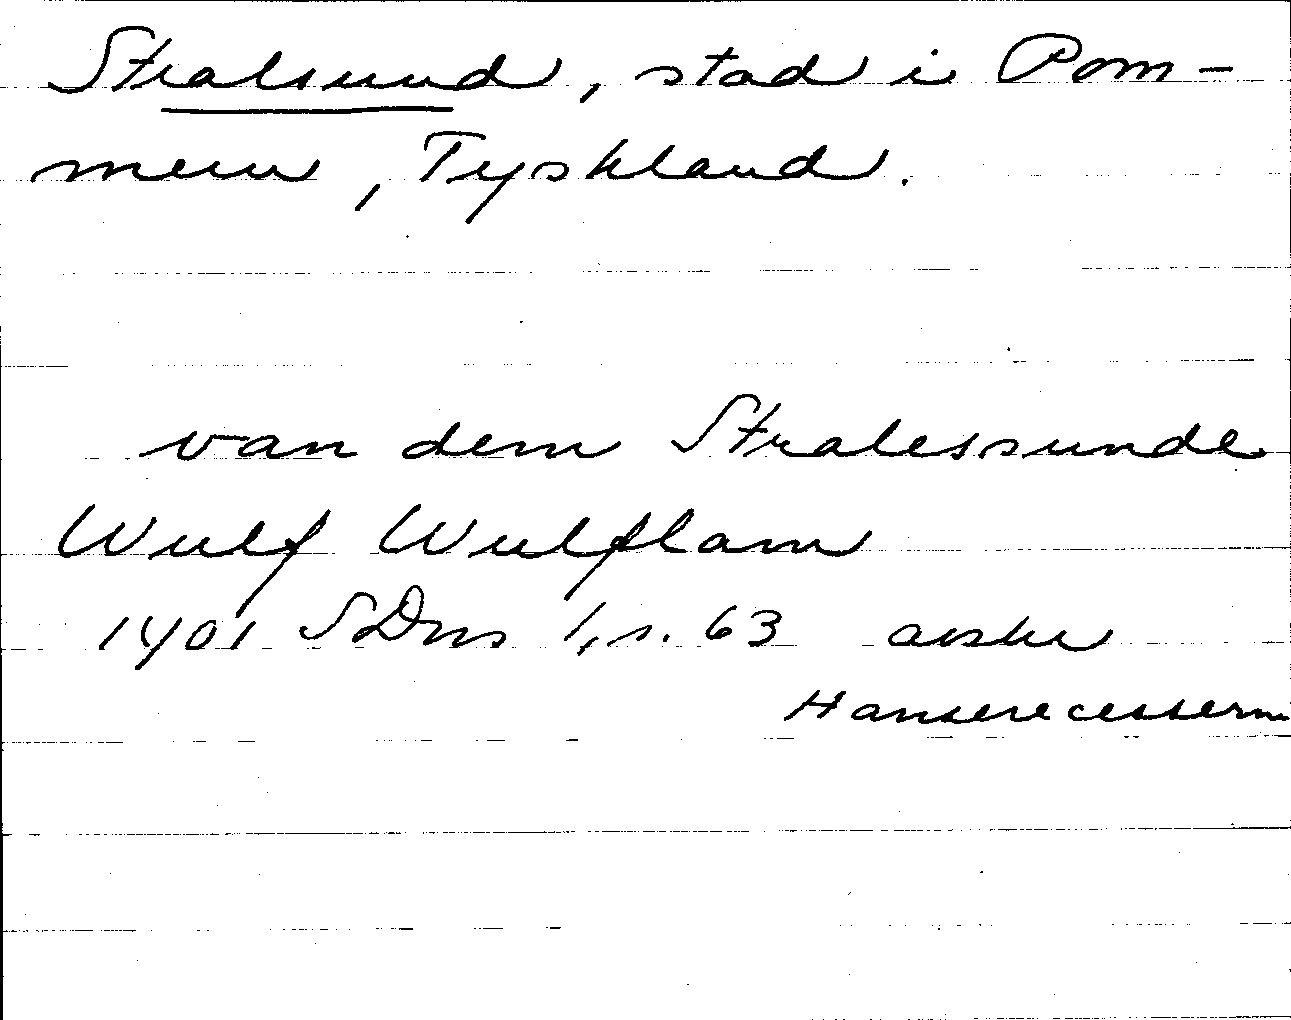 Stralsund, stad i Pom-
mern, Tyskland.
van dem Stralessunde
Wulf Wulflam
1401 SDns 1, s. 63 avskr
Hanserecessern